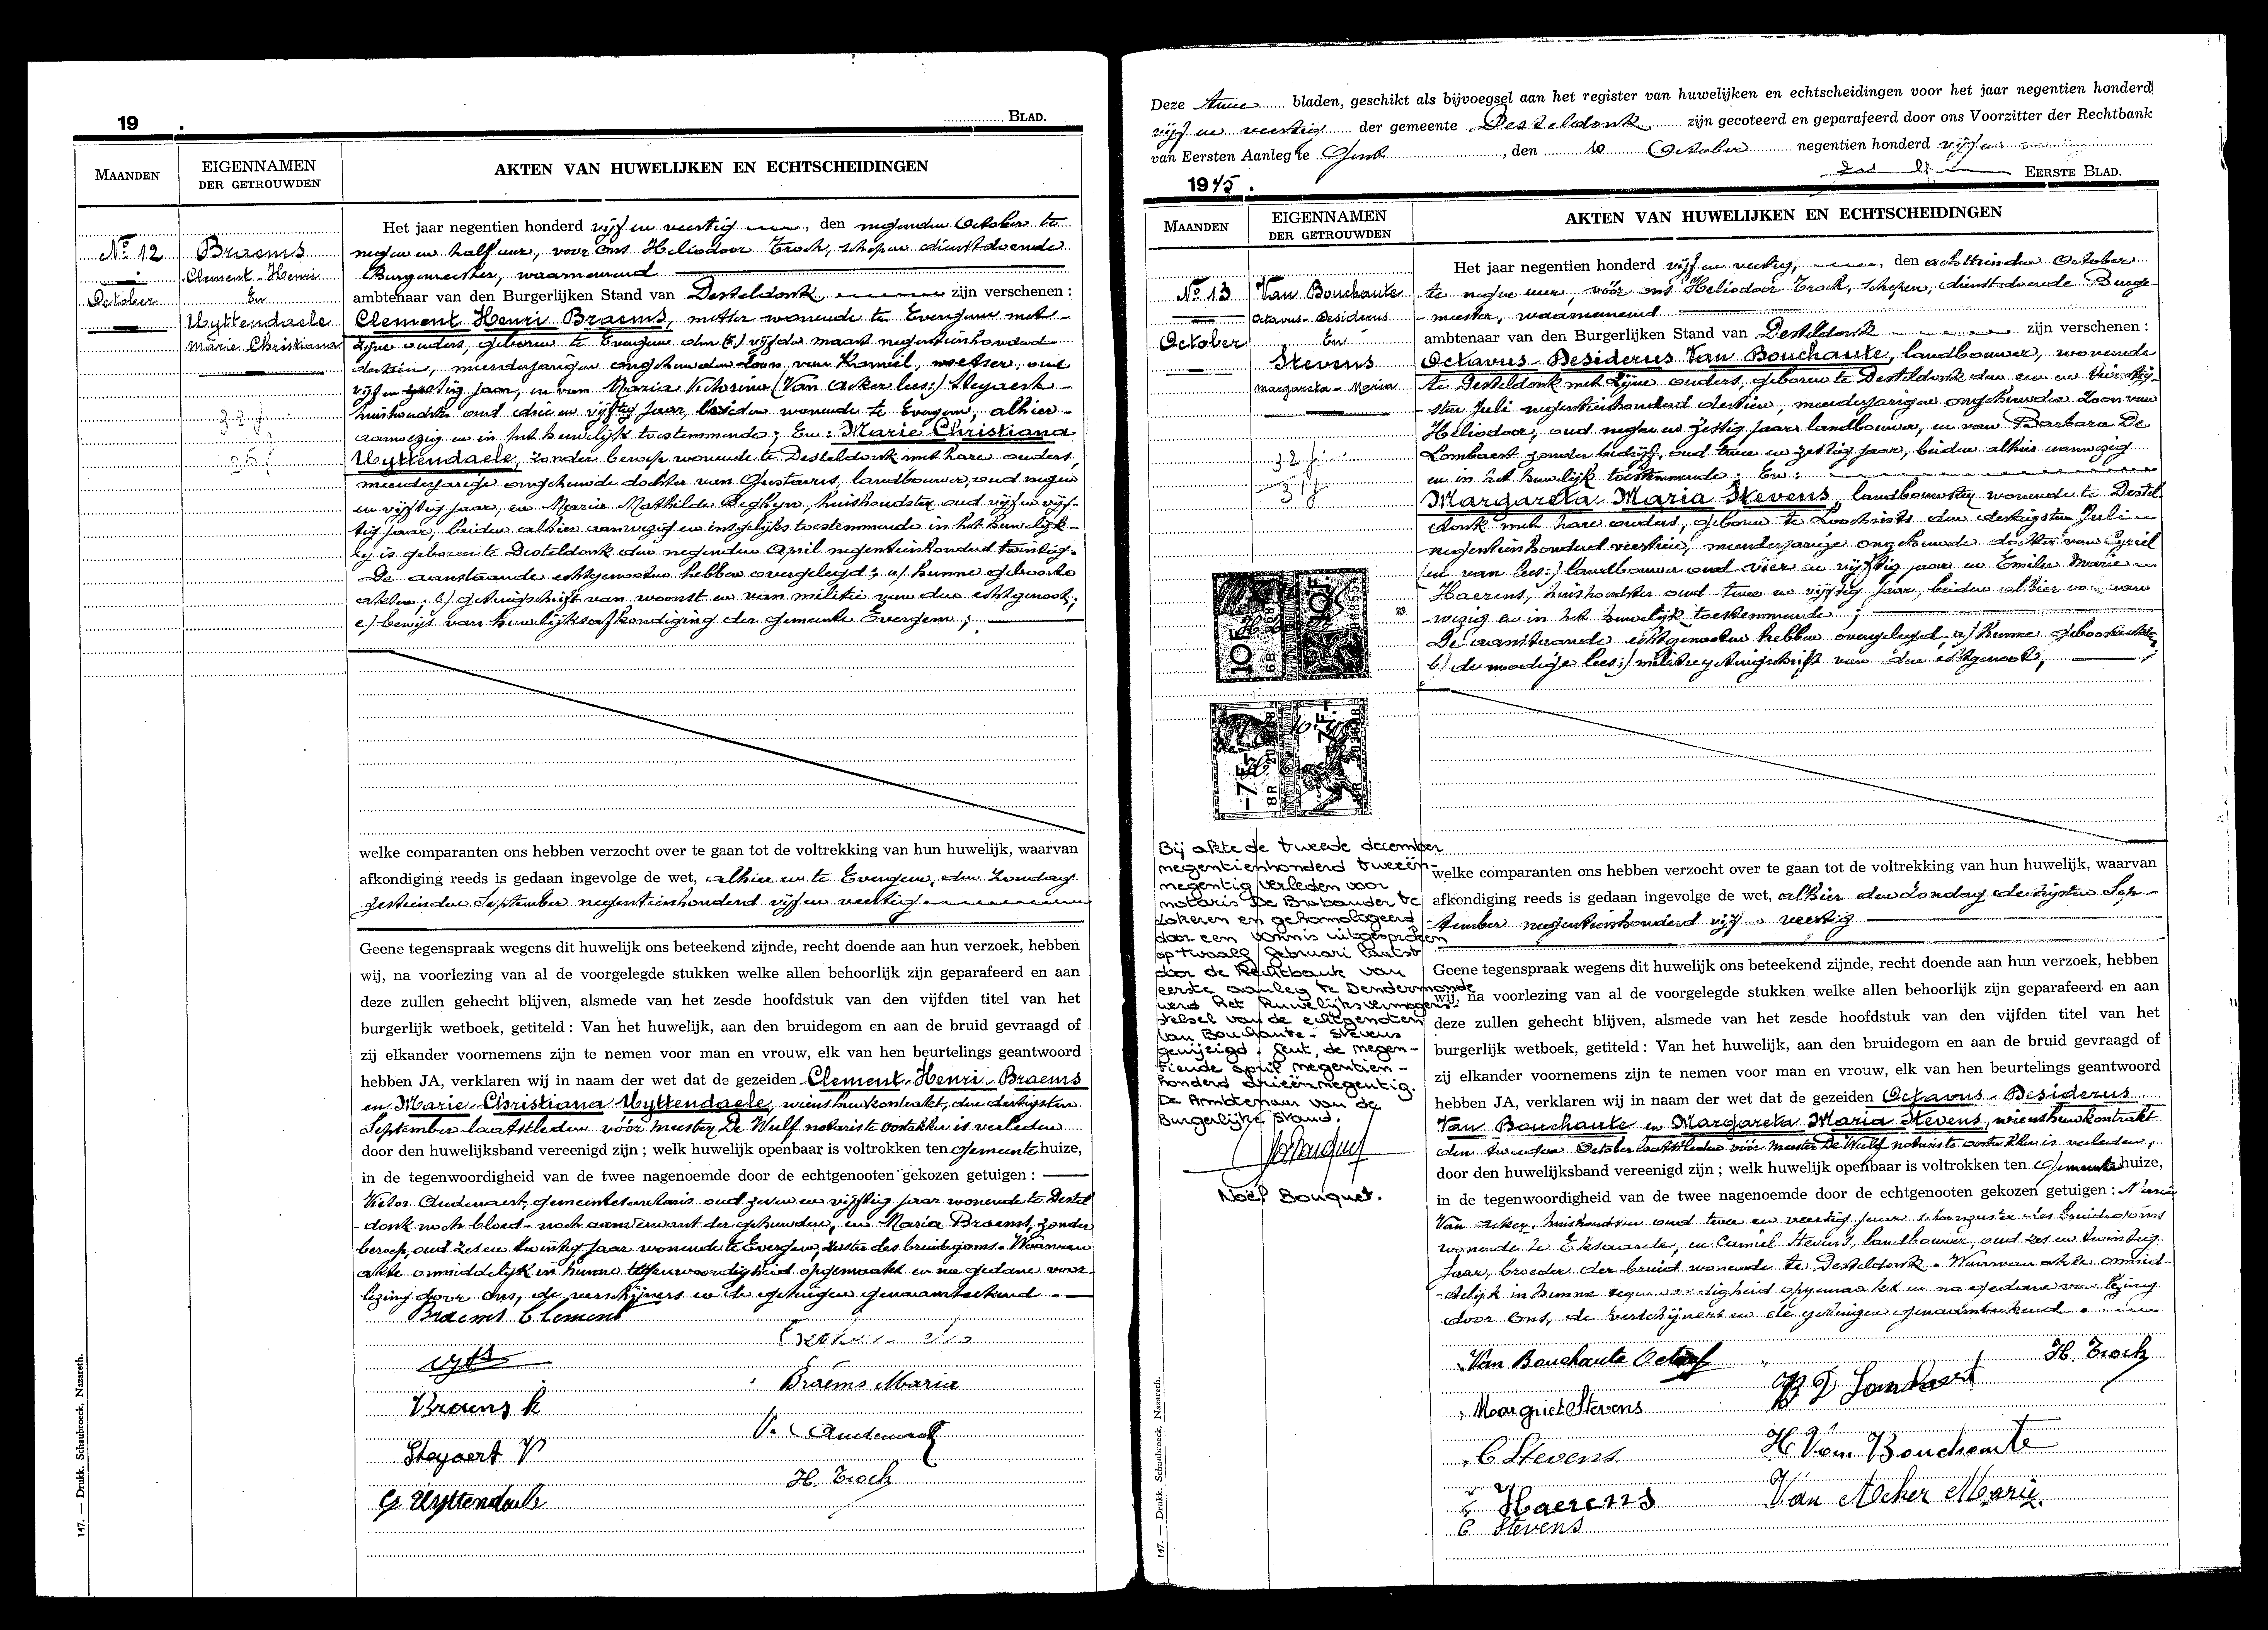 19 .
BLAD.
MAANDEN
EIGENNAMEN
DER GETROUWDEN
AKTEN VAN HUWELIJKEN EN ECHTSCHEIDINGEN
No 12
October
Braems
Clement-Henri
En
Uyttendaele
Marie Christiana
Het jaar negentien honderd vijf en veertig, den negenden October te
negen en half uur, voor ons Heliodoor Troch, schepen dienstdoende
Burgemeester, waarnemend
ambtenaar van den Burgerlijken Stand van Desteldonk zijn verschenen :
Clement Henri Braems, metser wonende te Evergem met
zijne ouders, geboren te Evergem den vijfden maart negentienhonderd
dertien, meerderjarigen ongehuwden zoon van Kamiel, metser, oud
vijf en zestig jaar, en van Maria Victorina (Van Acker lees:) Steyaert
huishoudster oud drie en vijftig jaar, beiden wonende te Evergem, alhier
aanwezig en in het huwelijk toestemmende; En: Marie Christiana
Uyttendaele, zonder beroep wonende te Desteldonk met hare ouders,
meerderjarige ongehuwde dochter van Gustavus, landbouwer, oud negen
en vijftig jaar, en Maria Mathilde Deghyn, huishoudster, oud vijf en vijf-
tig jaar, beiden alhier aanwezig en insgelijks toestemmende in het huwelijk
zij is geboren te Desteldonk den negenden April negentienhonderd twintig.
De aanstaande echtgenooten hebben overgelegd: a/ hunne geboorte
akten; b/ getuigschrift van woonst en van militie van den echtgenoot;
c/ bewijs van huwelijksafkondiging der gemeente Evergem;
welke comparanten ons hebben verzocht over te gaan tot de voltrekking van hun huwelijk, waarvan
afkondiging reeds is gedaan ingevolge de wet, alhier en te Evergem, den Zondag
zestienden September negentienhonderd vijf en veertig.
Geene tegenspraak wegens dit huwelijk ons beteekend zijnde, recht doende aan hun verzoek, hebben
wij, na voorlezing van al de voorgelegde stukken welke allen behoorlijk zijn geparafeerd en aan
deze zullen gehecht blijven, alsmede van het zesde hoofdstuk van den vijfden titel van het
burgerlijk wetboek, getiteld : Van het huwelijk, aan den bruidegom en aan de bruid gevraagd of
zij elkander voornemens zijn te nemen voor man en vrouw, elk van hen beurtelings geantwoord
hebben JA, verklaren wij in naam der wet dat de gezeiden Clement Henri Braems
en Marie Christiana Uyttendaele, wiens huwkontrakt, den dertigsten
September laatstleden vóór meester De Wulf notaris te Oostakker is verleden
door den huwelijksband vereenigd zijn ; welk huwelijk openbaar is voltrokken ten Gemeentehuize,
in de tegenwoordigheid van de twee nagenoemde door de echtgenooten gekozen getuigen :
Victor Audenaert, gemeentesecretaris oud zeven en vijftig jaar wonende te Destel
donk noch bloed- noch aanverwant der gehuwden, en Maria Braems, zonder
beroep, oud zes en twintig jaar wonende te Evergem, zuster des bruidegoms. Waarvan
akte onmiddelijk in hunne tegenwoordigheid opgemaakt en na gedane voor-
lezing door ons, de verschijners en de getuigen genaamteekend.
Braems Clement
Braems Maria
Braems K
V. Audenaert
Steyaert V
H. Troch
G Uyttendaele
147. — Drukk. Schaubroeck, Nazareth.
Deze twee bladen, geschikt als bijvoegsel aan het register van huwelijken en echtscheidingen voor het jaar negentien honderd
vijf en veertig der gemeente Desteldonk zijn gecoteerd en geparafeerd door ons Voorzitter der Rechtbank
van Eersten Aanleg te Gent, den 10 October negentien honderd vijf en
1945.
EERSTE BLAD.
MAANDEN
EIGENNAMEN
DER GETROUWDEN
AKTEN VAN HUWELIJKEN EN ECHTSCHEIDINGEN
No 13
October
Van Bouchaute
Octavus-Desiderus
En
Stevens
Margareta-Maria
Het jaar negentien honderd vijf en veertig, den achttienden October
te negen uur, vóór ons Heliodoor Troch, schepen, dienstdoende Burge-
meester, waarnemend
ambtenaar van den Burgerlijken Stand van Desteldonk zijn verschenen :
Octavus-Desiderus Van Bouchaute, landbouwer, wonende
te Desteldonk met zijne ouders, geboren te Desteldonk den een en twintig-
sten Juli negentienhonderd dertien, meerderjarigen ongehuwden zoon van
Heliodoor, oud negen en zestig jaar landbouwer, en van Barbara De
Lombaert zonder bedrijf, oud twee en zestig jaar, beiden alhier aanwezig
en in het huwelijk toestemmende; En:
Margareta Maria Stevens, landbouwster wonende te Destel
donk met hare ouders, geboren te Loochristi den dertigsten Juli
negentienhonderd veertien, meerderjarige ongehuwde dochter van Cyriel
(en van lees:) landbouwer oud vier en vijftig jaar en Emilie Marie
Haerens, huishoudster oud twee en vijftig jaar, beiden alhier aan
wezig en in het huwelijk toestemmende;
De aanstaande echtgenooten hebben overgelegd, a/ hunne geboorteakten
b/ de noodige lees:/ militiegetuigschrift van den echtgenoot;
10F
-7F-
8R
Bij akte de tweede december
negentienhonderd tweeën-
negentig verleden voor
notaris De Brabander te
Lokeren en gehomologeerd
door een vonnis uitgesproken
op twaalf februari laatst
door de Rechtbank van
eerste aanleg te Dendermonde
werd het huwelijksvermogens-
stelsel van de echtgenoten
Van Bouchaute - Stevens
gewijzigd. Gent, de negen-
tiende april negentien-
honderd drieënnegentig.
De Ambtenaar van de
Burgerlijke Stand.
Noël Bouquet.
welke comparanten ons hebben verzocht over te gaan tot de voltrekking van hun huwelijk, waarvan
afkondiging reeds is gedaan ingevolge de wet, alhier den Zondag dertigsten Sep-
tember negentienhonderd vijf en veertig
Geene tegenspraak wegens dit huwelijk ons beteekend zijnde, recht doende aan hun verzoek, hebben
wij, na voorlezing van al de voorgelegde stukken welke allen behoorlijk zijn geparafeerd en aan
deze zullen gehecht blijven, alsmede van het zesde hoofdstuk van den vijfden titel van het
burgerlijk wetboek, getiteld : Van het huwelijk, aan den bruidegom en aan de bruid gevraagd of
zij elkander voornemens zijn te nemen voor man en vrouw, elk van hen beurtelings geantwoord
hebben JA, verklaren wij in naam der wet dat de gezeiden Octavus-Desiderus
Van Bouchaute en Margareta Maria Stevens, wiens huwkontrakt
den tweeden October laatstleden vóór meester De Wulf notaris te Oostakker is verleden,
door den huwelijksband vereenigd zijn ; welk huwelijk openbaar is voltrokken ten Gemeentehuize,
in de tegenwoordigheid van de twee nagenoemde door de echtgenooten gekozen getuigen : Maria
Van Acker, huishoudster oud twee en veertig jaar schoonzuster des bruidegoms
wonende te Eksaarde, en Camiel Stevens, landbouwer, oud zes en twintig
jaar, broeder der bruid wonende te Desteldonk. Waarvan akte onmid-
delijk in hunne tegenwoordigheid opgemaakt en na gedane voorlezing
door ons, de verschijners en de getuigen genaamteekend.
Van Bouchaute Octaaf
H. Troch
B D Lombaert
Margriet Stevens
C Stevens
H Van Bouchaute
E Haerens
Van Acker Marie
C Stevens
147. — Drukk. Schaubroeck, Nazareth.